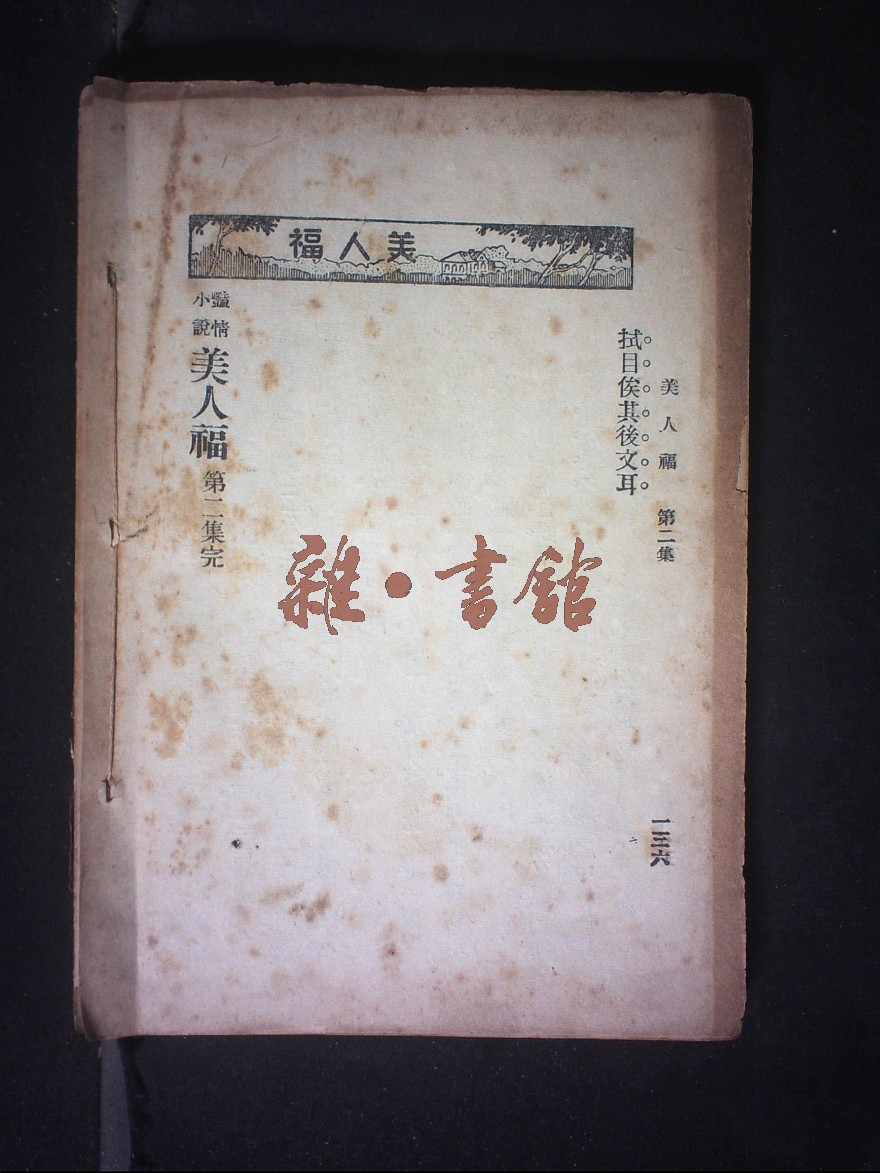 美人福
美人福 第二集
一三六
拭目俟其後文耳
豔情小說 美人福 第二集完
雜·書館